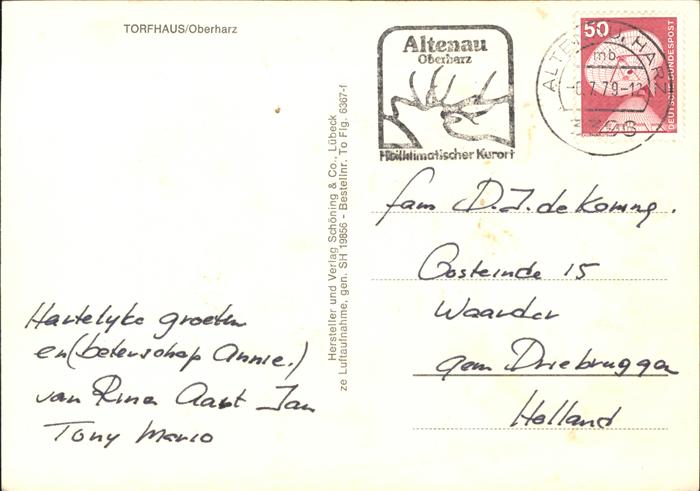 TORFHAUS/Oberharz
Hartelyke groeten
en (beterschap Annie.)
van Rina Aart Jan
Tony Marco
Hersteller und Verlag Schöning & Co., Lübeck
ze Luftaufnahme, gen. SH 19856 - Bestellnr. To Flg. 6367-f
Altenau
Oberharz
Heilklimatischer Kurort
ALTENAU, HARZ
mb
-6.7.79-12
50
DEUTSCHE BUNDESPOST
fam D.J. de Koning.
Oosteinde 15
Waarder
gem Driebruggen
Holland